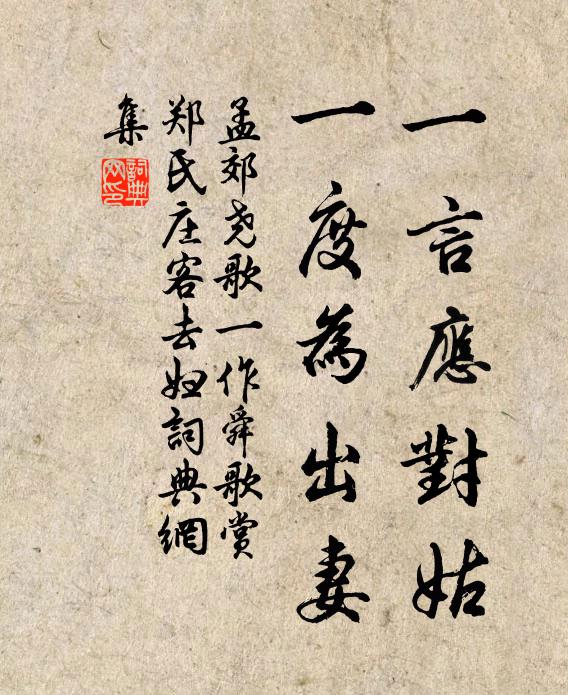 一言應對姑
一度為出妻
孟郊堯歌一作舜歌賞
郑氏庄客去妞詞典網
集
詞典
网印